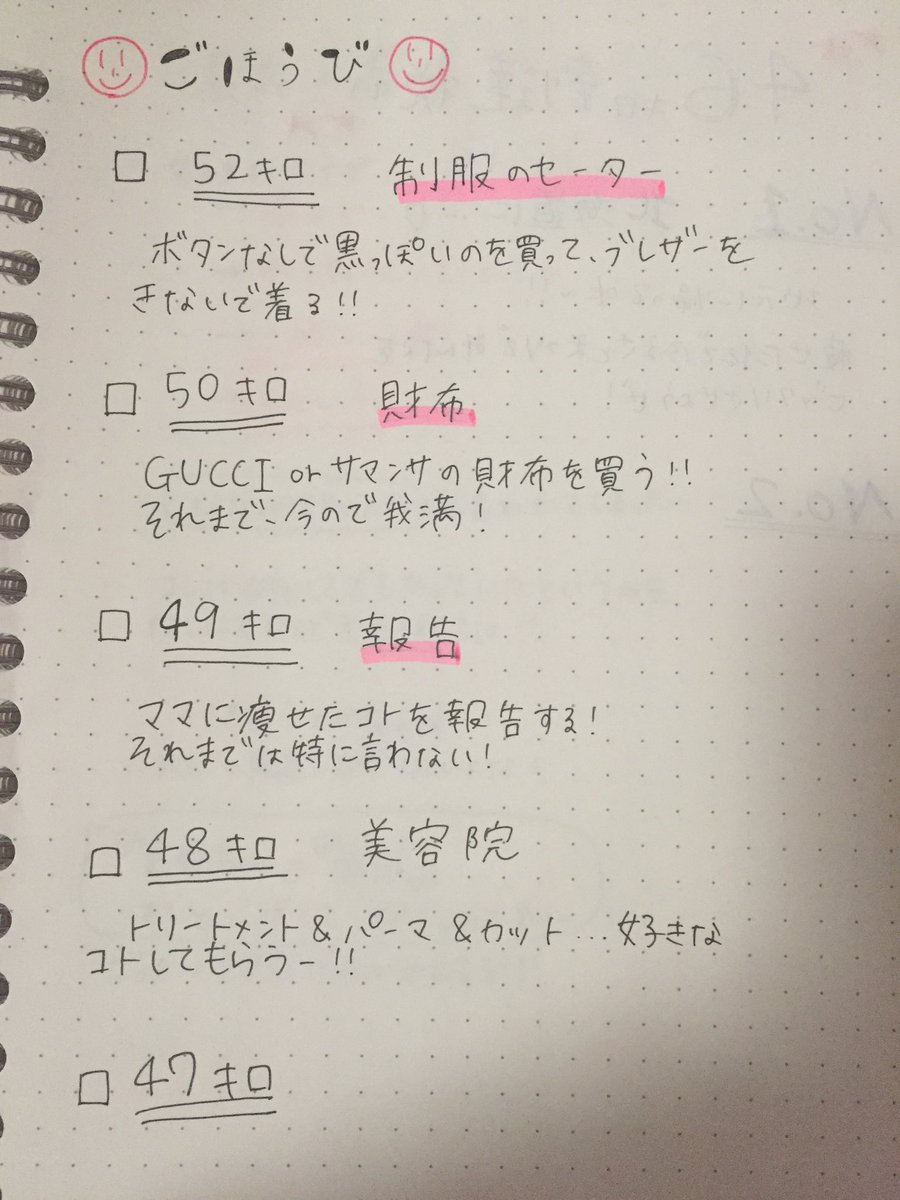 ごほうび
52キロ 制服のセーター
ボタンなしで黒っぽいのを買って、ブレザーを
きないで着る!!
50キロ 財布
GUCCI or サマンサの財布を買う!!
それまで、今ので我満!
49キロ 報告
ママに痩せたコトを報告する!
それまでは特に言わない!
48キロ 美容院
トリートメント&パーマ&カット...好きな
コトしてもらうー!!
47キロ